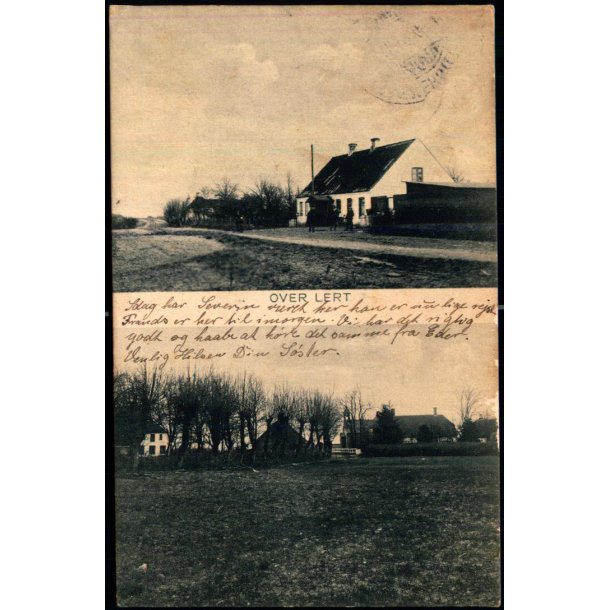 OVER LERT
Idag har Severin været her han er nu lige rejst
Frands er her til imorgen. Vi har det rigtig
godt og haabe at høre det samme fra Eder.
Venlig Hilsen Din Søster.